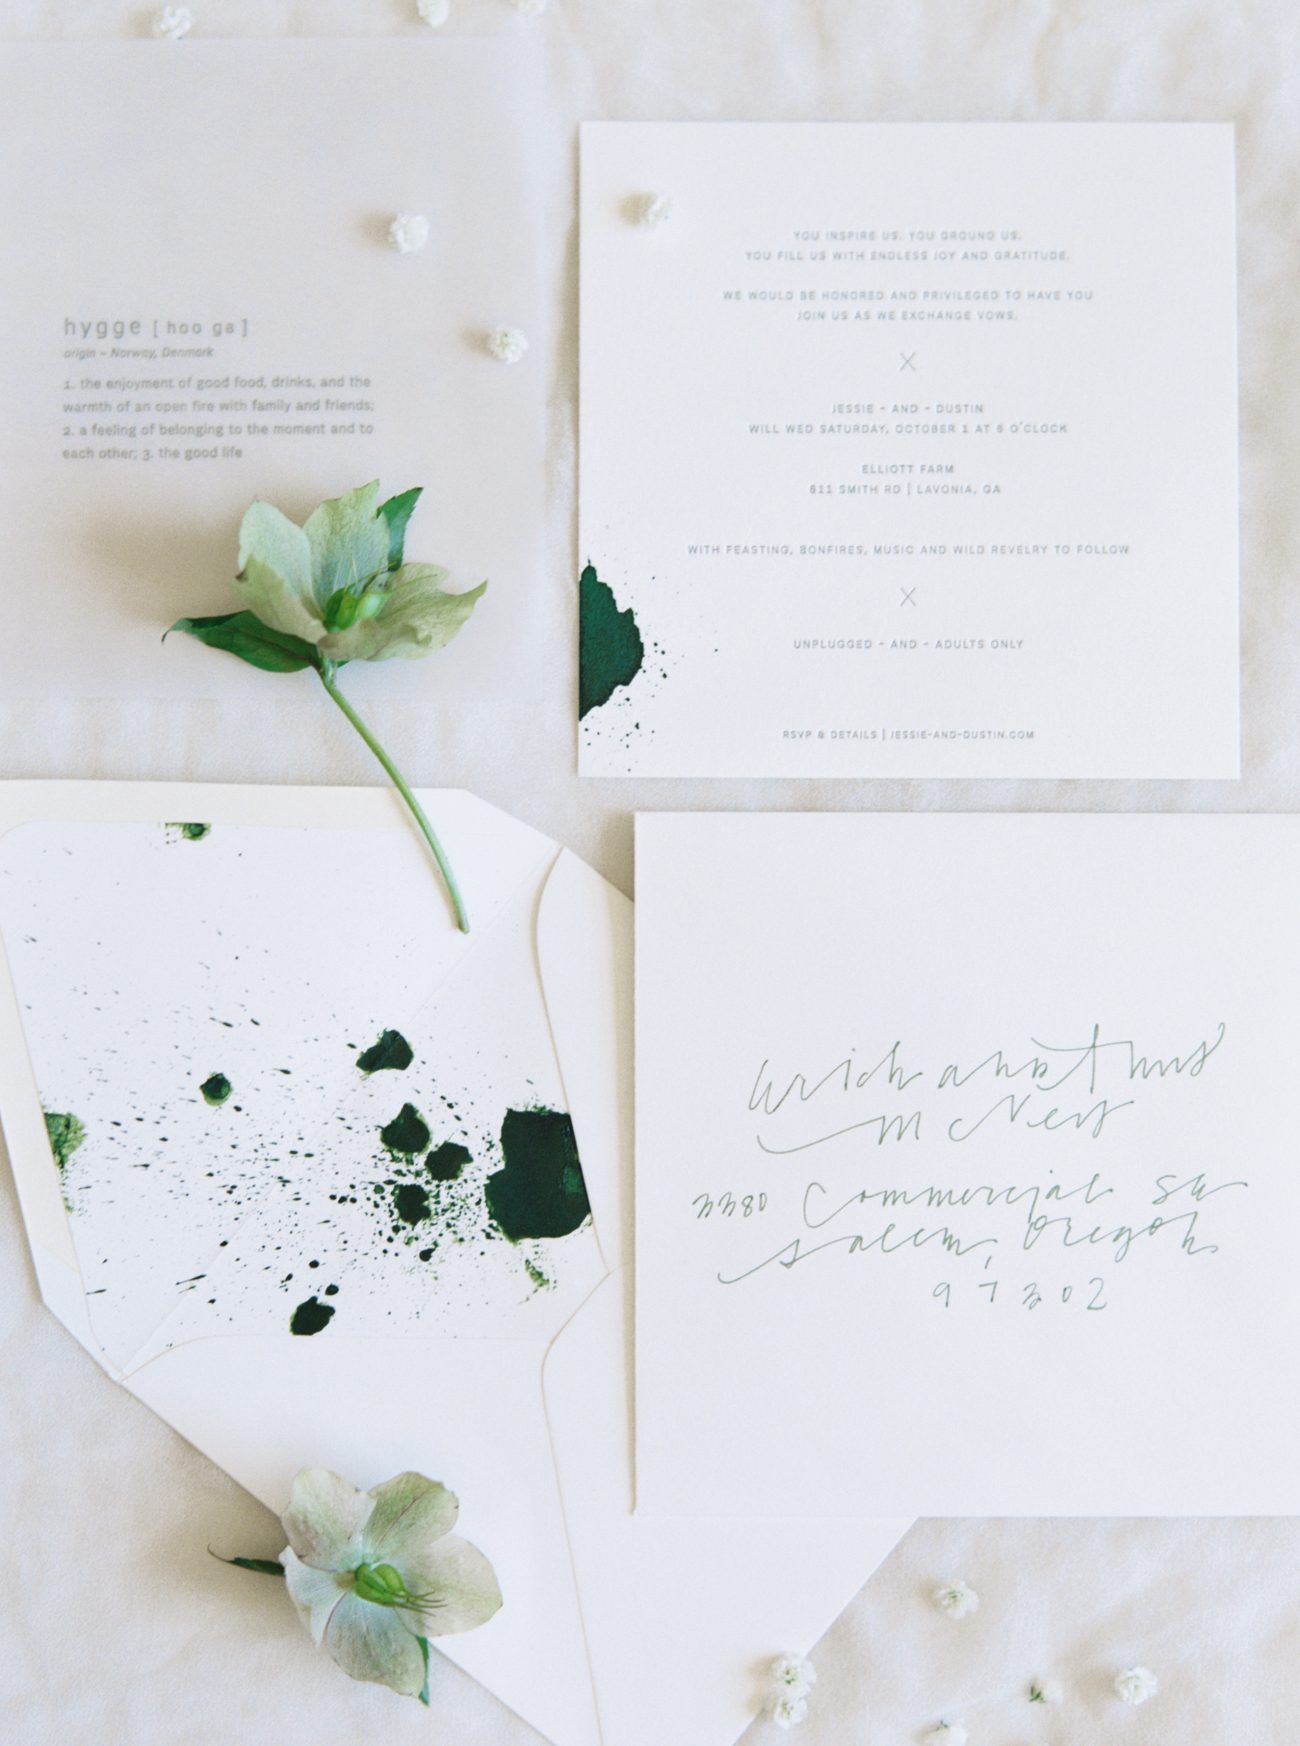 hygge [ hoo ga ]
origin – Norway, Denmark
1. the enjoyment of good food, drinks, and the
warmth of an open fire with family and friends;
2. a feeling of belonging to the moment and to
each other; 3. the good life
YOU INSPIRE US. YOU GROUND US.
YOU FILL US WITH ENDLESS JOY AND GRATITUDE.
WE WOULD BE HONORED AND PRIVILEGED TO HAVE YOU
JOIN US AS WE EXCHANGE VOWS.
X
JESSIE - AND - DUSTIN
WILL WED SATURDAY, OCTOBER 1 AT 6 O'CLOCK
ELLIOTT FARM
611 SMITH RD | LAVONIA, GA
WITH FEASTING, BONFIRES, MUSIC AND WILD REVELRY TO FOLLOW
X
UNPLUGGED - AND - ADULTS ONLY
RSVP & DETAILS | JESSIE-AND-DUSTIN.COM
3380 Commercial SE
Salem, Oregon
97302